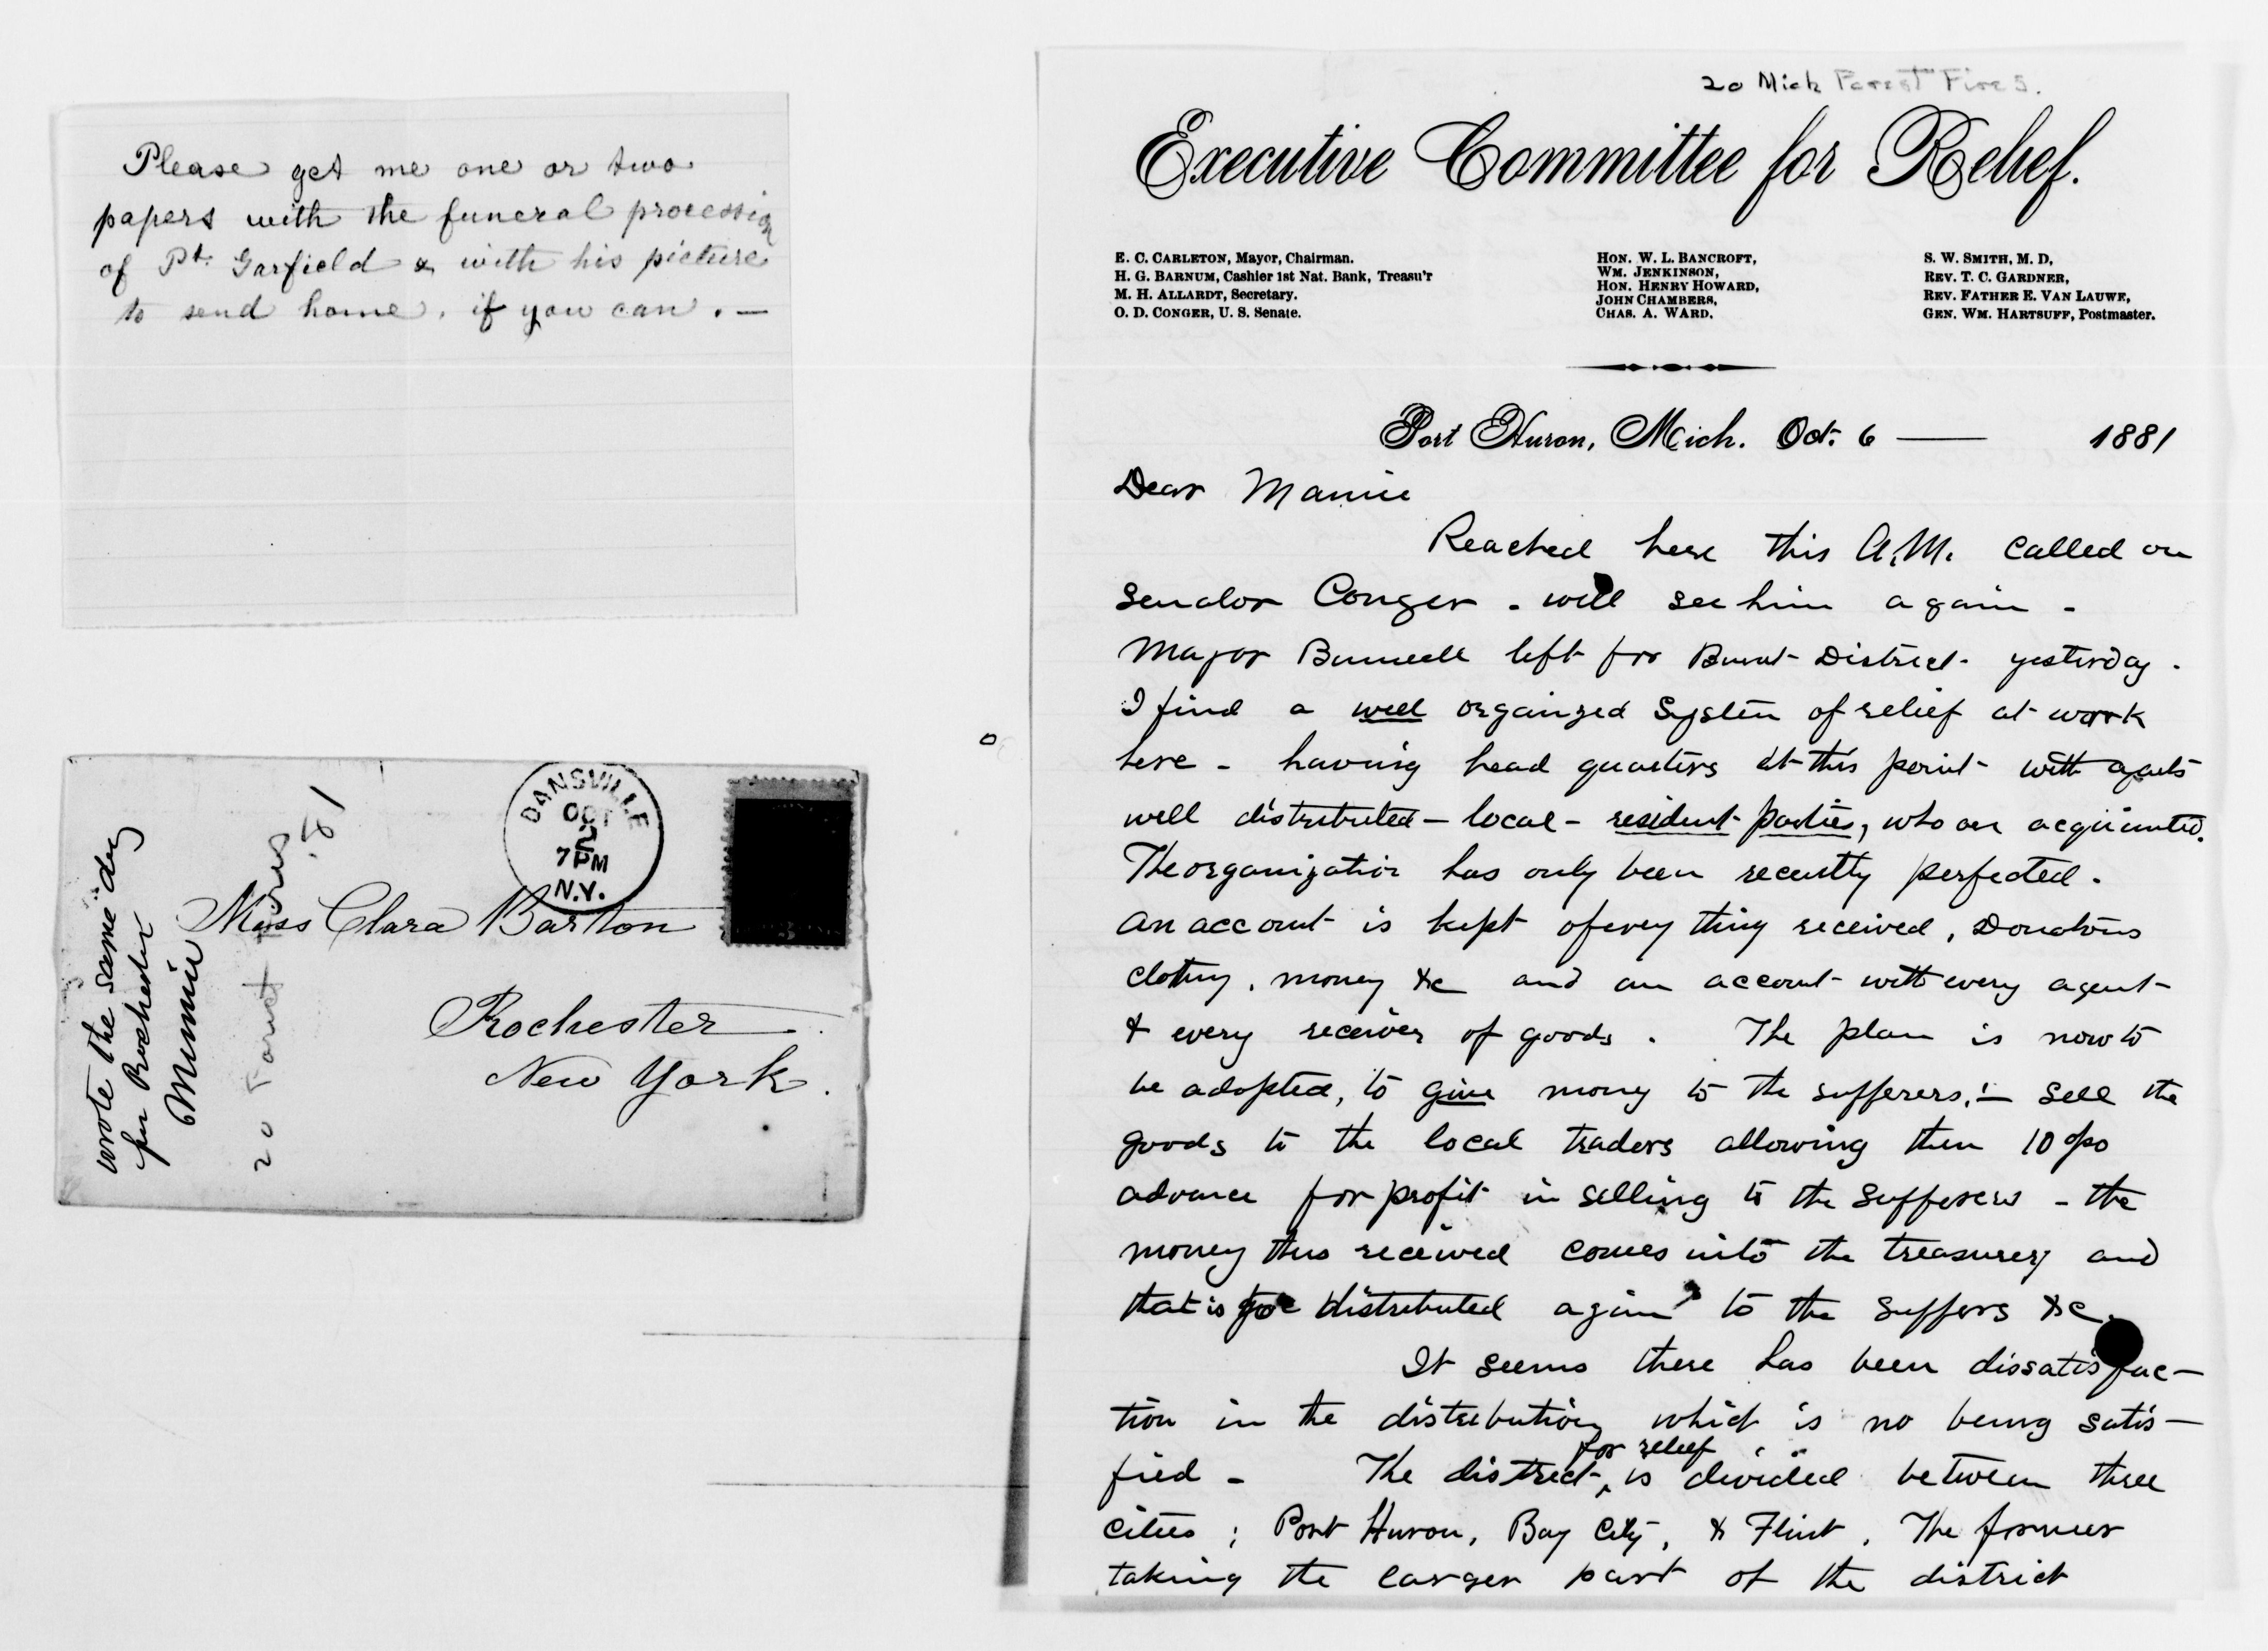 Please get me one or two
papers with the funeral procession
of Pt. Garfield & with his picture
to send home, if you can. —
DANSVILLE
OCT
2
7 PM
N.Y.
Miss Clara Barton
Rochester
New York.
wrote the same day
for Rochester
Minnie
20 Forest Fires
'81
20 Mich Forest Fires.
Executive Committee for Relief.
E. C. CARLETON, Mayor, Chairman.
H. G. BARNUM, Cashier 1st Nat. Bank, Treasu'r
M. H. ALLARDT, Secretary.
O. D. CONGER, U. S. Senate.
HON. W. L. BANCROFT,
WM. JENKINSON,
HON. HENRY HOWARD,
JOHN CHAMBERS,
CHAS. A. WARD.
S. W. SMITH, M. D,
REV. T. C. GARDNER,
REV. FATHER E. VAN LAUWE,
GEN. WM. HARTSUFF, Postmaster.
Port Huron, Mich. Oct. 6 — 1881
Dear Mamie
Reached here this A.M. called on
Senator Conger - will see him again -
Major Bunnell left for Burnt District yesterday.
I find a well organized System of relief at work
here - having head quarters at this point with agents
well distributed - local - resident parties, who are acquainted.
The organization has only been recently perfected.
An account is kept of every thing received, Donations
clothing, money &c and an account with every agent
& every receiver of goods. The plan is now to
be adopted, to give money to the sufferers,— sell the
goods to the local traders allowing them 10 o/o
advance for profit in selling to the sufferers - the
money thus received comes into the treasurery and
that is distributed again to the suffers &c.
It seems there has been dissatisfac-
tion in the distribution which is no being satis-
fied - The district for relief is divided between three
cities; Port Huron, Bay City, & Flint. The former
taking the larger part of the district